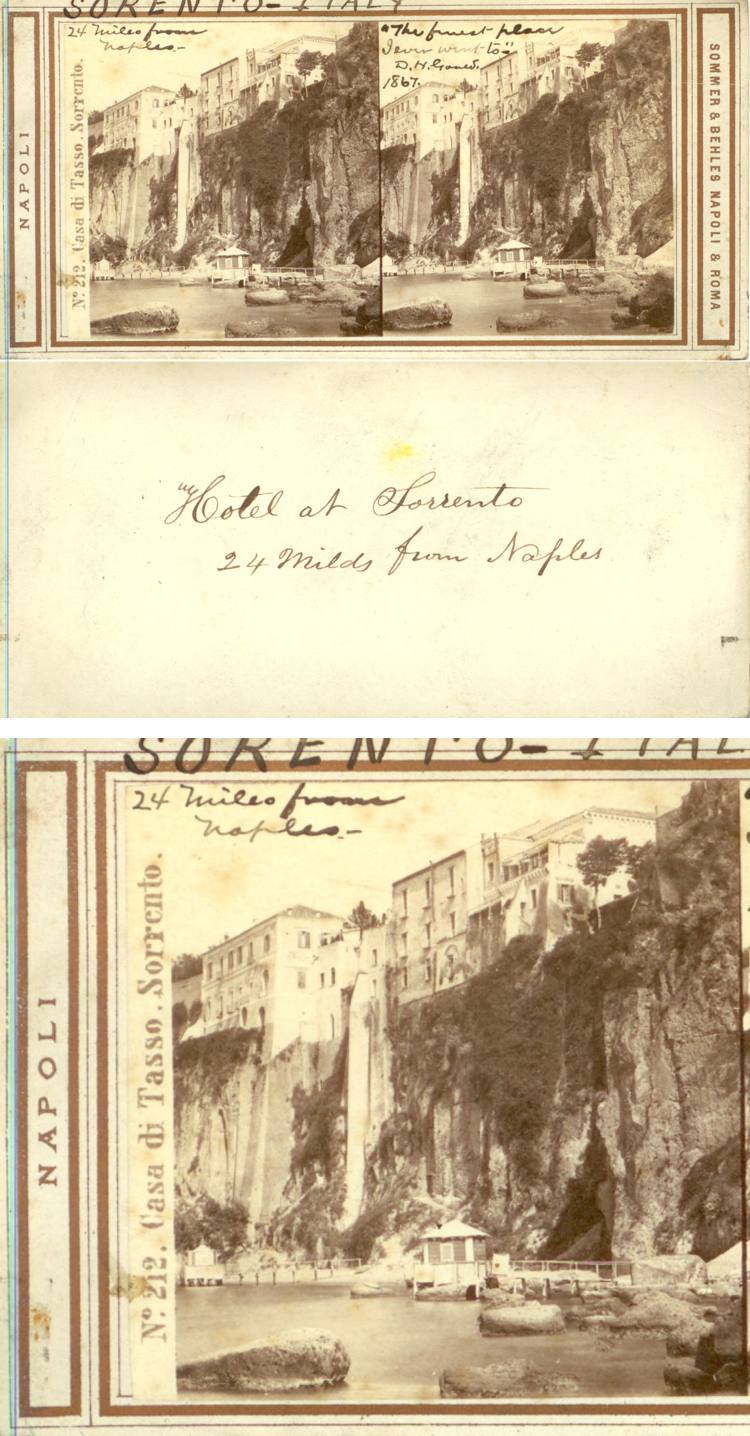 SORENTO-ITALY
24 Miles from
Naples.-
"The finest place
I ever went to"
D.H.
1867.
NAPOLI
Nº 212. Casa di Tasso. Sorrento.
SOMMER & BEHLES NAPOLI & ROMA
"Hotel at Sorrento
24 Milds from Naples
SORENTO-ITAL
24 Miles from
Naples.-
NAPOLI
Nº 212. Casa di Tasso. Sorrento.